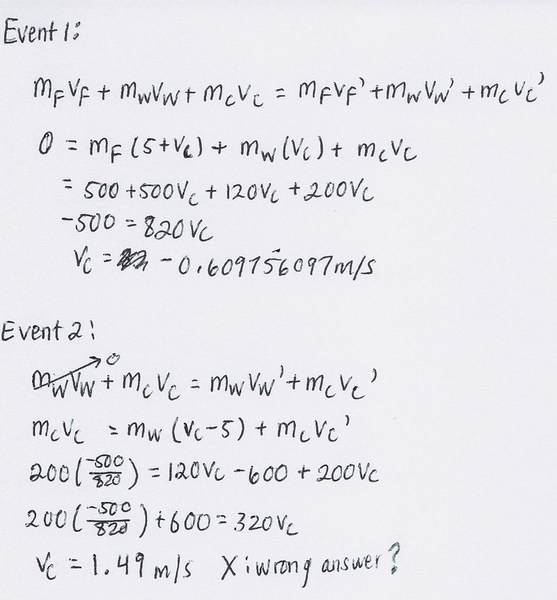 Event 1:
mFVF + mwVw + mcVc = mFVF' + mwVw' + mcVc'
0 = mF (5+Vc) + mw(Vc) + mcVc
= 500 + 500Vc + 120Vc + 200Vc
-500 = 820Vc
Vc = -0.609756097m/s
Event 2:
mwVw→0 + mcVc = mwVw' + mcVc'
mcVc = mw (Vc-5) + mcVc'
200(-500/820) = 120Vc - 600 + 200Vc
200(-500/820) + 600 = 320Vc
Vc = 1.49 m/s X i wrong answer?